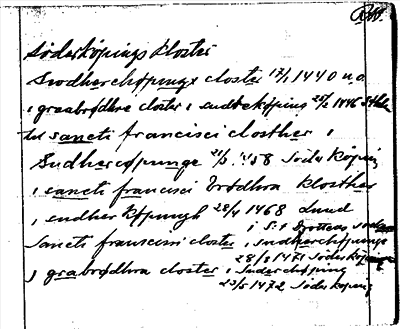 Söderköpings kloster
Swdherchøpungx closter 17/1 1440 u.o.
i graabrødhre closter i sudherkøping 25/2 1446 Sthlm
sancti francisci closther i
Sudhercøpunge 21/3 1458 Söderköping
i sancti francisci brödhra klosther
i sudher køpungh 28/4 1468 Lund
i S:t
Sancti francisci closter i sudherchöpunge
28/8 1471 Söderköping
j grabrödhra closter i Suderchöping
23/5 1472 Söderköping